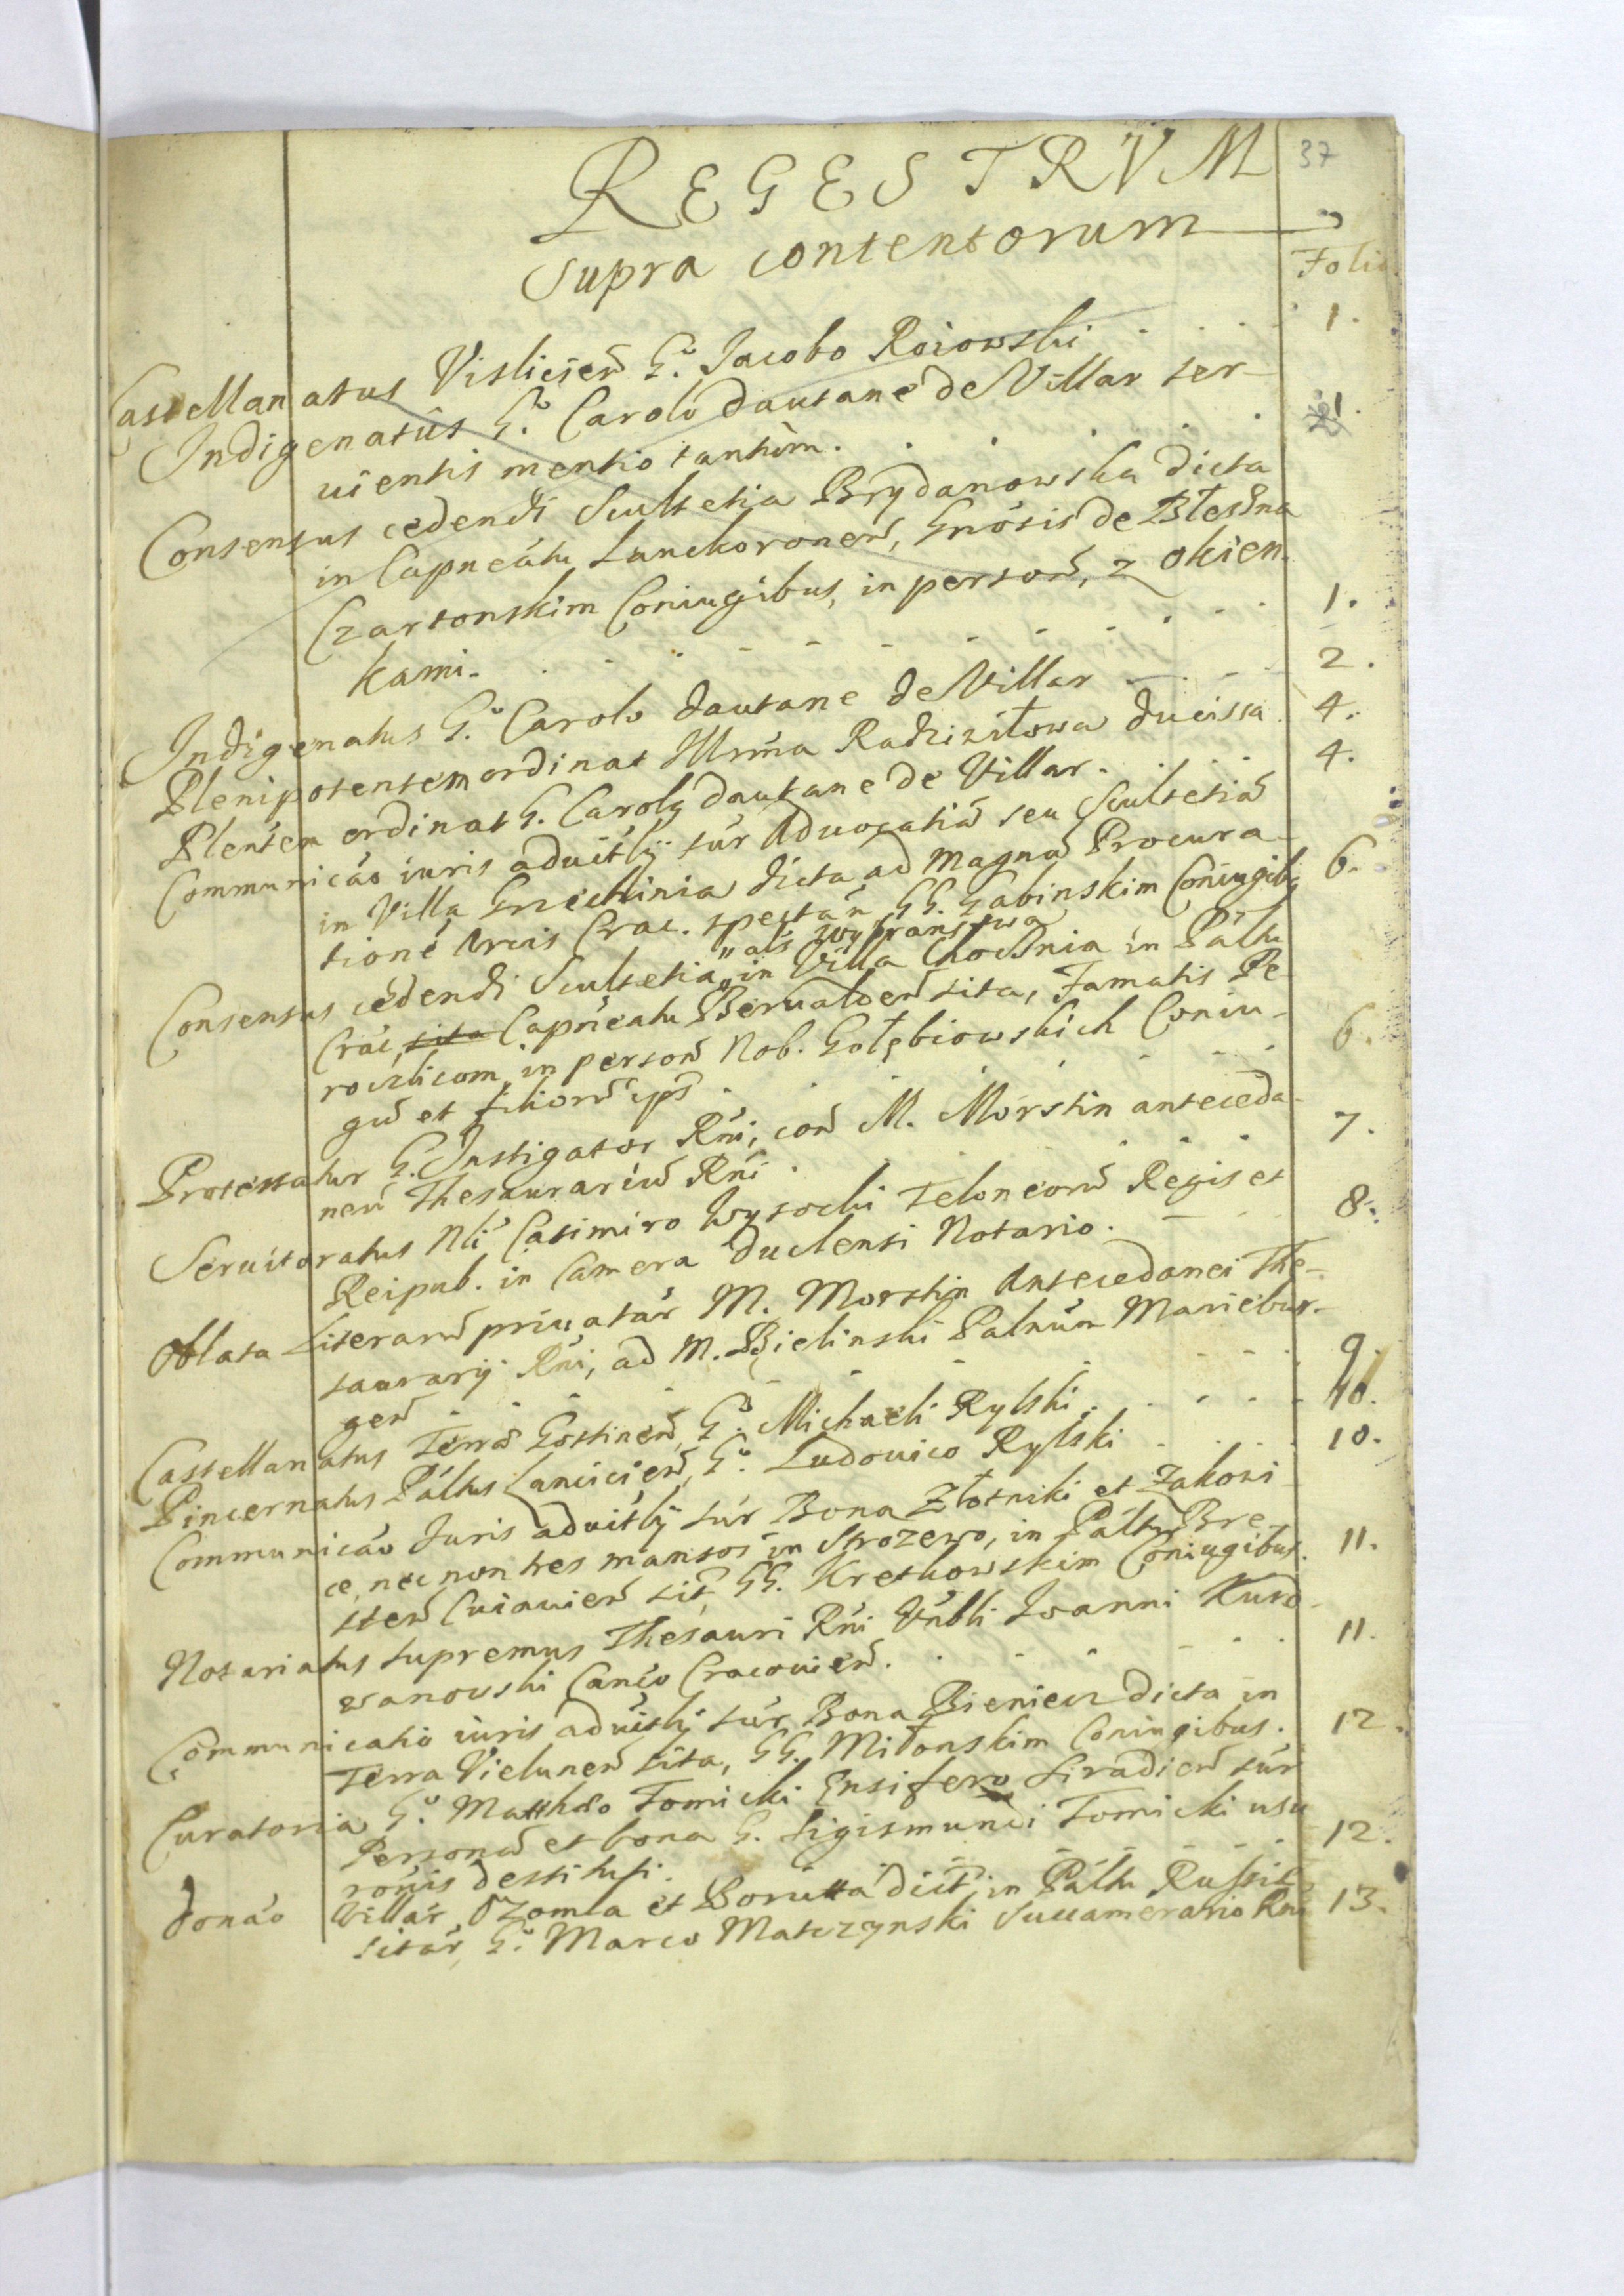 REGESTRVM
37
Supra contentorum
Folio
Castellanatus Vislicień Gº. Jacobo Roiowski . . . 1.
Indigenatus Gº. Carolo Dautane de Villar ser-
uientis mentio tantùm. . . . . 1.
Consensus cedendi Scultetia Brydanowska dicta
in Capneátu Lanckoroneń, Gnósis de Błeszna
Czartonskim Coniugibus, in personã, z okien-
kami. . . . . . 1.
Indigenatus Gº. Carolo Dautane de Villar . . . 2.
Plenipotentem ordinat Illrma Radziwiłowa ducissa . 4.
Plentem ordinat G. Carolg Dautane de Villar. . . . 4.
Communicáo iuris aduitlÿ súr Aduocatiã seu Scultetiã
in Villa Gnechinia dicta ad magnã Procura-
tionẽ Arcis Crac. spectán GG. Gabinskim Coniugibg 6.
als wybranstwa
Consensus cedendi Scultetia in Villa Chocznia in Páltu
Crac, sita Capneatu Berualdeń sita, Famatis Pe
roczlicom in personã Nob. Gołębiowskich Coniu-
gũ et filiorũ ips . . . 6.
Protestatur G. Instigator Rńi, con M. Morstin anteceda-
neũ Thesaurariũ Rńi . . . 7.
Seruitoratus Nli Casimiro Wysocki Teloneorũ Regis et
Reipub. in Camera Duclensi Notario. . . 8.
Oblata Literarũ priuatár M. Morstin Antecedanei The-
saurarij Rńi, ad M. Bielinski Palnúm Mariebur-
geń . . . 9.
Castellanatus Terrã Gostineń, Gº. Michaeli Rylski . . . 10.
Pincernatus Páltus Lancicień, Gº. Ludouico Rylski . . . 10.
Communicáo Iuris aduitlÿ súr Bona Złotniki et Zakowi
ce, nec non tres mansos in Strozewo, in Páltu Bre-
steń Cuiauień sit, GG. Kretkowskim Coniugibus. 11.
Notariatus supremus Thesauri Rńi Vnbli Ioanni Kurd-
wanowski Canco Cracouień. . . . 11.
Communicatio iuris aduitlÿ súr Bona Bieniecz dicta in
Terra Vieluneń sita, GG. Mitonskim Coniugibus. 12.
Curatoria Gº. Matthæo Tomicki Ensifero Siradień súr
Personã et bona G. Sigismundi Tomicki usu
rońis destituti. . . . 12.
Donáo Villár, Rzomla et Borutta dict, in Páltu Russiæ
sitár, Gº. Marco Matczynski Succamerario Rni 13.